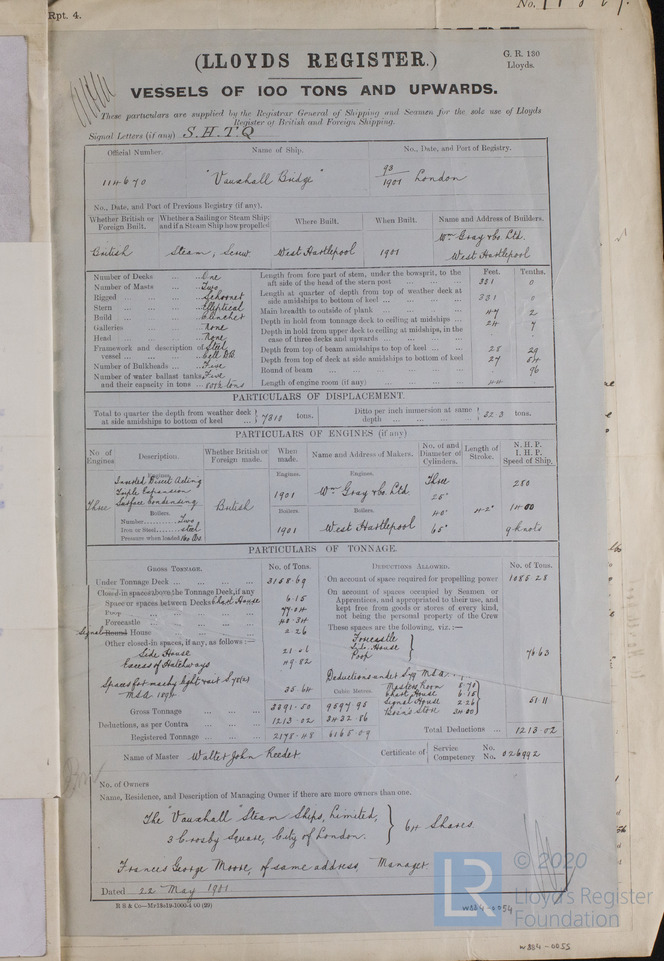 Rpt. 4.
No.
(LLOYDS REGISTER.)
G. R. 130
Lloyds.
VESSELS OF 100 TONS AND UPWARDS.
These particulars are supplied by the Registrar General of Shipping and Seamen for the sole use of Lloyds
Register of British and Foreign Shipping.
Signal Letters (if any) S.H.T.Q
Official Number. Name of Ship. No., Date, and Port of Registry.
114670 "Vauxhall Bridge" 93/1901 London
No., Date, and Port of Previous Registry (if any).
Whether British or Foreign Built. Whether a Sailing or Steam Ship; and if a Steam Ship how propelled Where Built. When Built. Name and Address of Builders.
British Steam, Screw West Hartlepool 1901 Wm Gray & Co. Ltd. West Hartlepool
Number of Decks ... One
Number of Masts ... Two
Rigged ... Schooner
Stern ... Elliptical
Build ... Clincher
Galleries ... None
Head ... None
Framework and description of vessel ... Steel Cell D.B.
Number of Bulkheads ... Five
Number of water ballast tanks, Five
and their capacity in tons ... tons
Feet. Tenths.
Length from fore part of stem, under the bowsprit, to the
aft side of the head of the stern post ... 331 0
Length at quarter of depth from top of weather deck at
side amidships to bottom of keel ... 331 0
Main breadth to outside of plank ... 47 2
Depth in hold from tonnage deck to ceiling at midships ... 24 7
Depth in hold from upper deck to ceiling at midships, in the
case of three decks and upwards
Depth from top of beam amidships to top of keel ... 25 29
Depth from top of deck at side amidships to bottom of keel 27 54
Round of beam ... 96
Length of engine room (if any) ... 44
PARTICULARS OF DISPLACEMENT.
Total to quarter the depth from weather deck
at side amidships to bottom of keel ... 7310 tons.
Ditto per inch immersion at same
depth ... 32.3 tons.
PARTICULARS OF ENGINES (if any)
No. of Engines. Description. Whether British or Foreign made. When made. Name and Address of Makers. No. of and Diameter of Cylinders. Length of Stroke. N. H. P. I. H. P. Speed of Ship.
Engines. Engines. Engines.
Three Inverted Direct Acting
Triple Expansion
Surface Condensing
British 1901 Wm Gray & Co. Ltd. Three 25" 40" 65" 280
Boilers. Boilers. Boilers.
Number Two
Iron or Steel steel
Pressure when loaded 160 lbs
1901 West Hartlepool 1400 9 knots
PARTICULARS OF TONNAGE.
GROSS TONNAGE. No. of Tons. DEDUCTIONS ALLOWED. No. of Tons.
Under Tonnage Deck ... 3158.69
Closed-in spaces above the Tonnage Deck, if any
Space or spaces between Decks Chart House 6.15
Poop ... 77.04
Forecastle ... 40.34
Signal Round House ... 2.26
Other closed-in spaces, if any, as follows:—
Side House 21.56
Excess of Hatchways 49.82
Spaces for machy light & air S 78(2)
M.S.A. 1894 35.64
Cubic Metres.
Gross Tonnage ... 3391.50 9597.95
Deductions, as per Contra ... 1213.02 3432.86
Registered Tonnage ... 2178.48 6165.09
On account of space required for propelling power 1085.28
On account of spaces occupied by Seamen or
Apprentices, and appropriated to their use, and
kept free from goods or stores of every kind,
not being the personal property of the Crew
These spaces are the following, viz.:—
Forecastle
Side House
Poop
76.63
Deductions under S 79 M.S.A.
Masters Room 8.70
Chart House 6.15
Signal House 2.26
Bosn's Store 34.00
51.11
Total Deductions ... 1213.02
Name of Master Walter John Reeder
Certificate of Service No.
Competency No. 026992
No. of Owners
Name, Residence, and Description of Managing Owner if there are more owners than one.
The "Vauxhall" Steam Ships, Limited,
3 Crosby Square, City of London. 64 Shares
Francis George Moore, of same address, Manager
Dated 22 May 1901
© 2020
LR
Lloyd's Register
Foundation
W884-0054
W884-0055